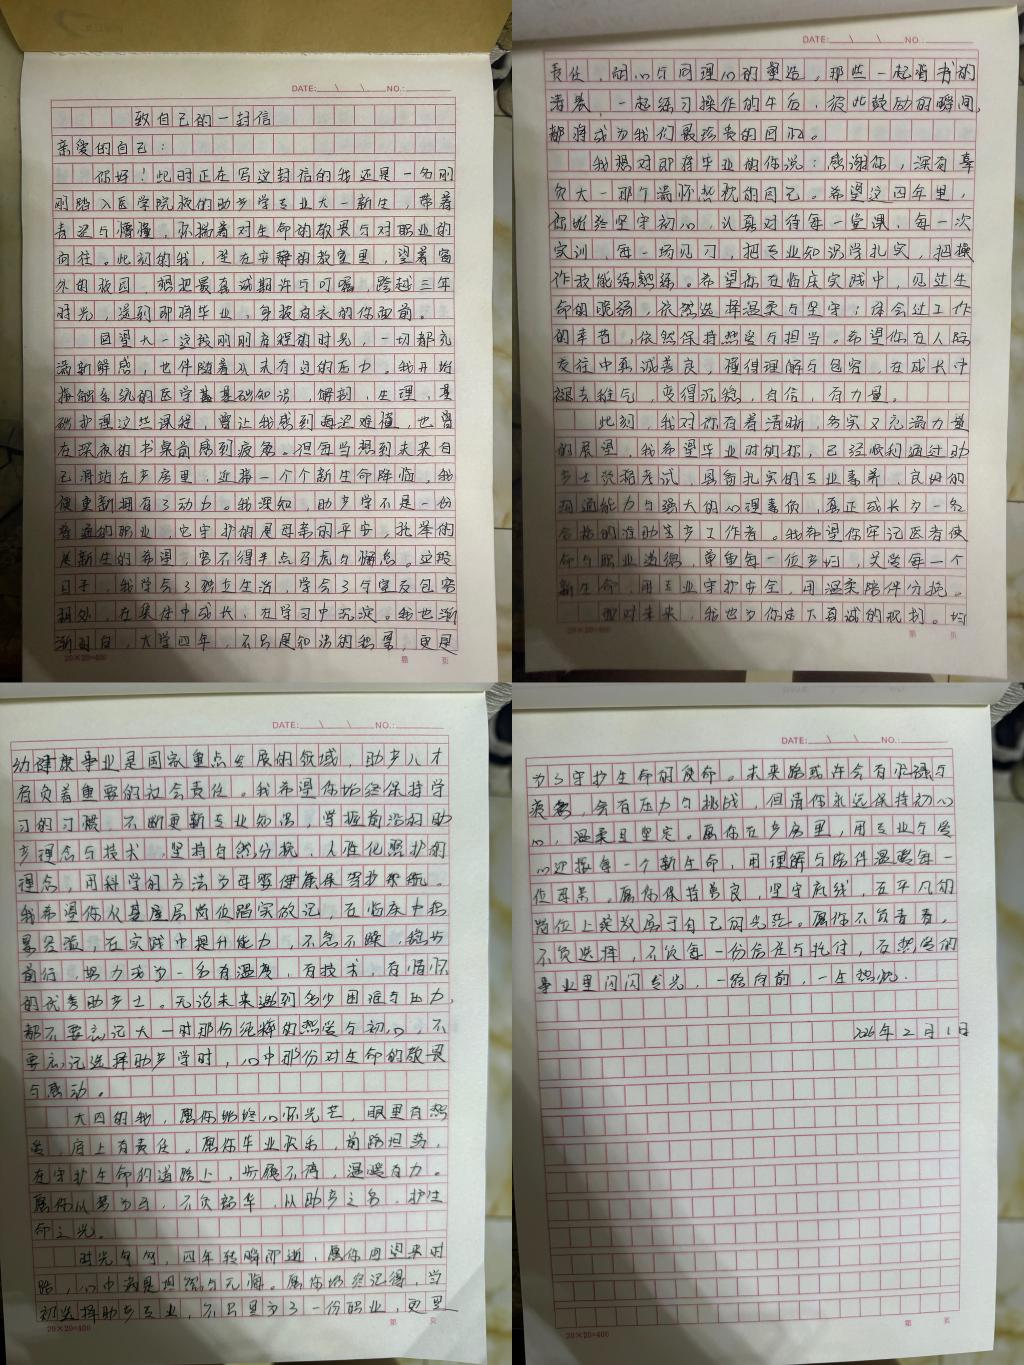 DATE: \ \ NO.:
致自己的一封信
亲爱的自己：
你好！此时正在写这封信的我还是一名刚
刚踏入医学院校的助产学专业大一新生，带着
青涩与懵懂，怀揣着对生命的敬畏与对职业的
向往。此刻的我，坐在安静的教室里，望着窗
外的校园，想把最真诚期许与叮嘱，跨越三年
时光，送到即将毕业、身披白衣的你面前。
回望大一这段刚刚启程的时光，一切都充
满新鲜感，也伴随着从未有过的压力。我开始
接触系统的医学基础知识，解剖、生理、基
础护理这些课程，曾让我感到晦涩难懂，也曾
在深夜的书桌前感到疲惫。但每当想到未来自
己将站在产房里，迎接一个个新生命降临，我
便重新拥有了动力。我深知，助产学不是一份
普通的职业，它守护的是母亲的平安，托举的
是新生的希望，容不得半点马虎与懈怠。这段
日子，我学会了独立生活，学会了与室友包容
相处，在集体中成长，在学习中沉淀。我也渐
渐明白，大学四年，不只是知识的积累，更是
20×20=400 第 页
DATE: \ \ NO.:
责任、耐心与同理心的塑造，那些一起背书的
清晨、一起练习操作的午后、彼此鼓励的瞬间，
都将成为我们最珍贵的回忆。
我想对即将毕业的你说：感谢你，没有辜
负大一那个满怀热忱的自己。希望这四年里，
你始终坚守初心，认真对待每一堂课、每一次
实训、每一场见习，把专业知识学扎实，把操
作技能练熟练。希望你在临床实践中，见过生
命的脆弱，依然选择温柔与坚守；体会过工作
的辛苦，依然保持热爱与担当。希望你在人际
交往中真诚善良，懂得理解与包容，在成长中
褪去稚气，变得沉稳、自信、有力量。
此刻，我对你有着清晰、务实又充满力量
的展望，我希望毕业时的你，已经顺利通过助
产士资格考试，具备扎实的专业素养、良好的
沟通能力与强大的心理素质，真正成长为一名
合格的准助产工作者。我希望你牢记医者使
命与职业道德，尊重每一位产妇，关爱每一个
新生命，用专业守护安全，用温柔陪伴分娩。
面对未来，我也为你送下真诚的祝福。妇
第 页
DATE: \ \ NO.:
幼健康事业是国家重点发展的领域，助产人才
肩负着重要的社会责任。我希望你始终保持学
习的习惯，不断更新专业知识，掌握前沿的助
产理念与技术，坚持自然分娩、人性化照护的
理念，用科学的方法为母婴健康保驾护航。
我希望你从基层岗位踏实做起，在临床中积
累经验，在实践中提升能力，不急不躁，稳步
前行，努力成为一名有温度、有技术、有情怀
的优秀助产士。无论未来遇到多少困难与压力，
都不要忘记大一时那份纯粹的热爱与初心，不
要忘记选择助产学时，心中那份对生命的敬畏
与感动。
大四的我，愿你始终心怀光芒，眼里有热
爱，肩上有责任。愿你毕业快乐，前路坦荡，
在守护生命的道路上，步履不停，温暖有力。
愿你不负韶华，以助产之名，护生
命之光。
时光匆匆，四年转瞬即逝，愿你回望来时
路，心中满是坦荡与无悔。愿你始终记得，当
初选择助产专业，不只是为了一份职业，更是
20×20=400 第 页
DATE: \ \ NO.:
为了守护生命的使命。未来路或许会有忙碌与
疲惫，会有压力与挑战，但请你永远保持初心
，温柔且坚定。愿你在产房里，用专业与爱
心迎接每一个新生命，用理解与陪伴温暖每一
位母亲。愿你保持善良，坚守底线，在平凡的
岗位上绽放属于自己的光芒。愿你不负青春，
不负选择，不负每一份信任与托付，在热爱的
事业里闪闪发光，一路向前，一生热忱.
2026年2月1日
20×20=400 第 页